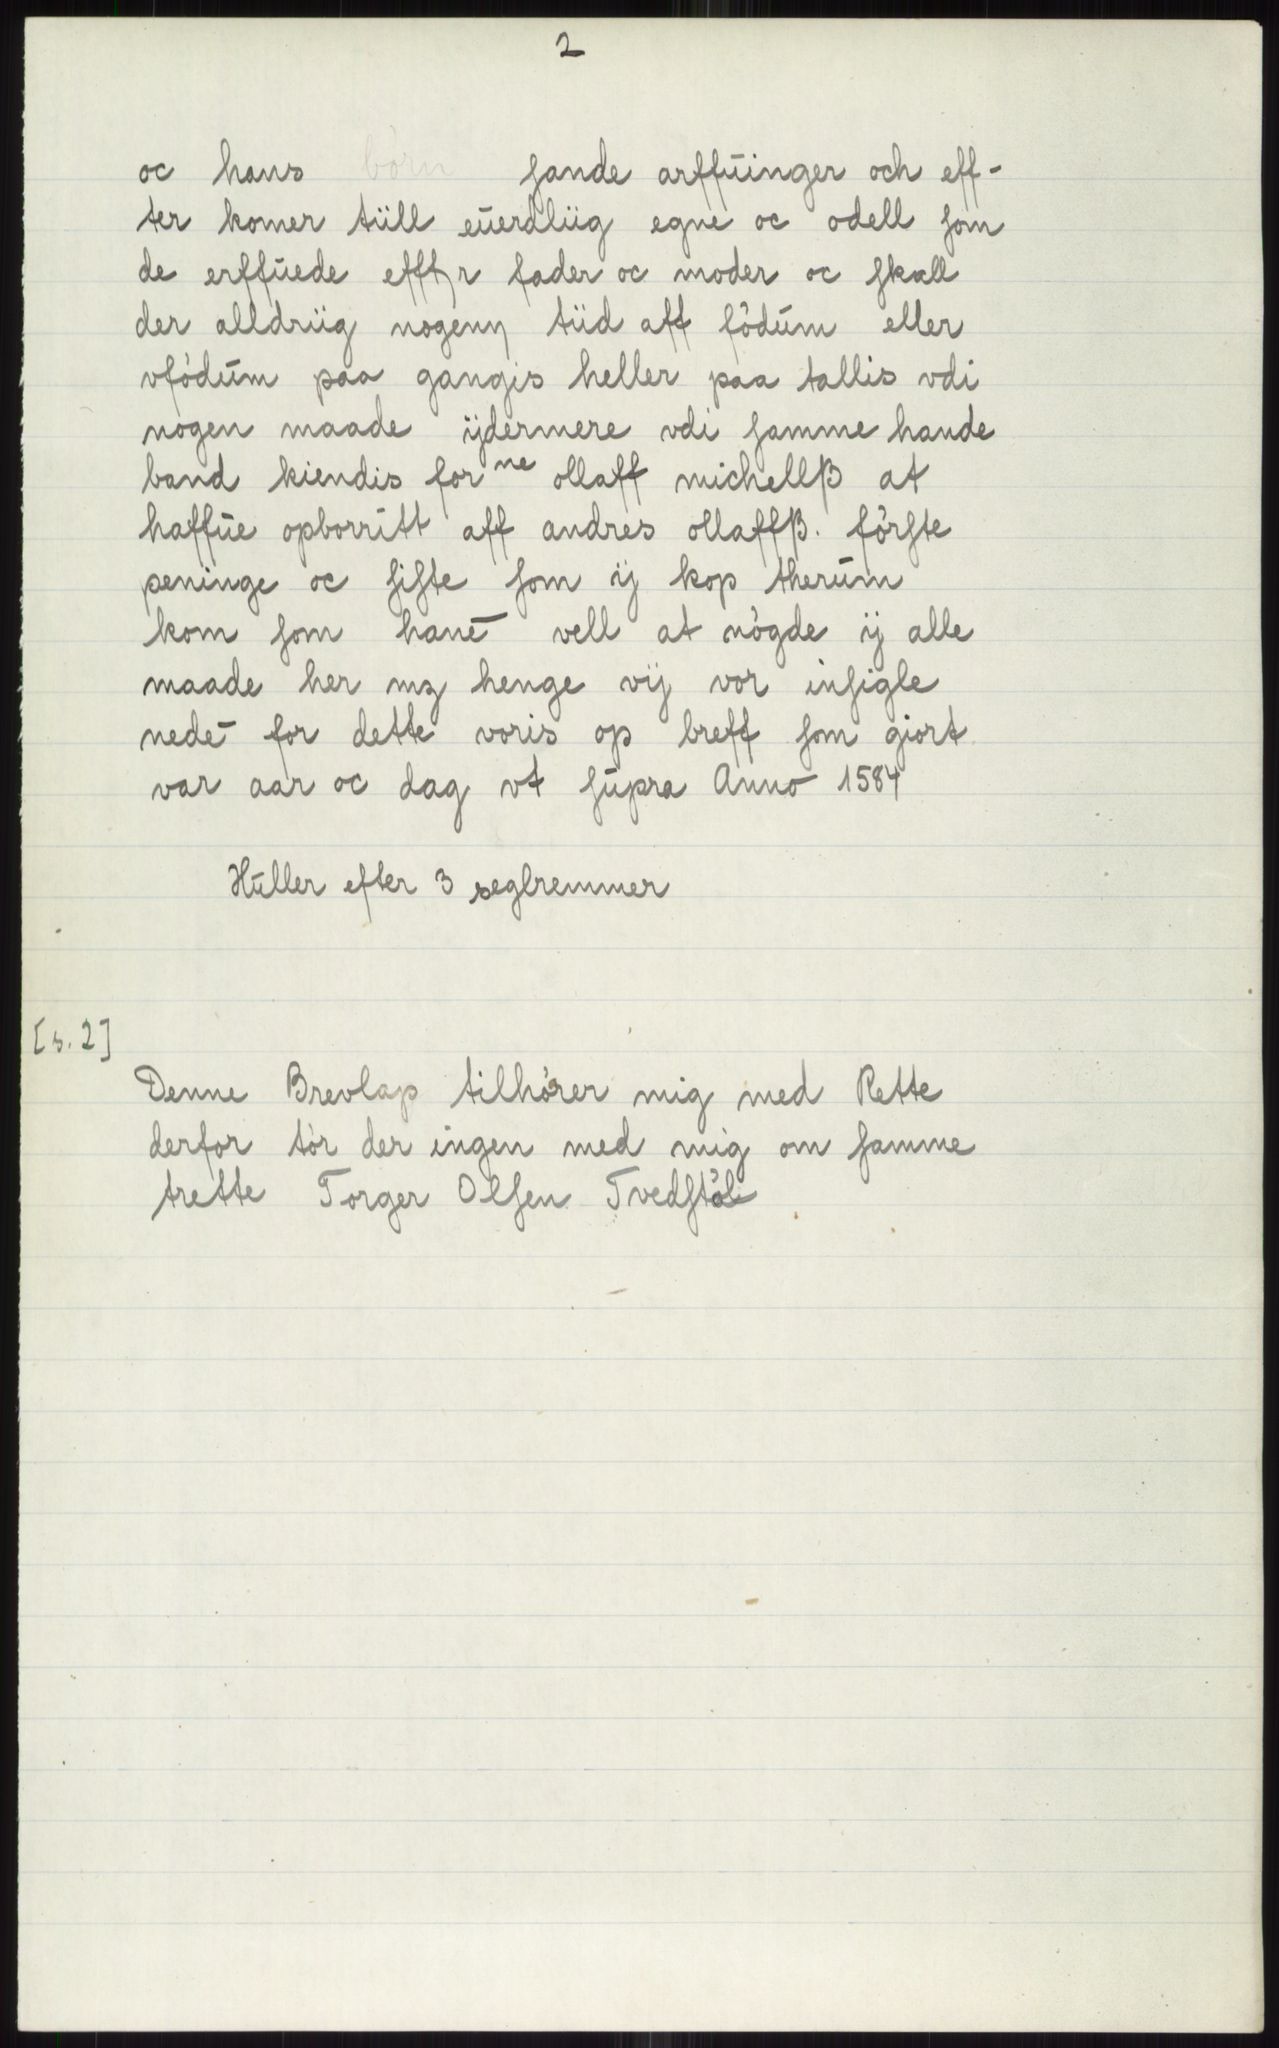 2
oc hans börn sande arffūinger och eff-
ter komer tüll eūerdlüg egne oc odell som
de erffūede efftr fader oc moder oc skall
der alldrüg nogenn tüd aff födūm eller
vfödūm paa gangis heller paa tallis vdi
nogen maade ÿdermere vdi samme hande
band kiendis for ne ollaff michellß at
haffūe opborritt aff andres ollaffß. förste
peninge oc siste som ij kop therūm
kom som hanē vell at nögde ij alle
maade her mz henge vij vor insigle
nedē for dette voris op breff som giort
var aar oc dag vt sūpra Anno 1584
Hūller efter 3 seglremmer
[s. 2]
Denne Brevlap tilhörer mig med Rette
derfor tör der ingen med mig om samme
trette Torger Olsen Tvedstöl